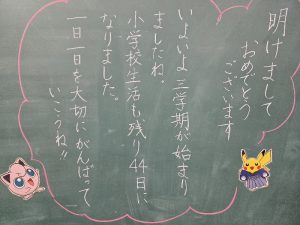 明けまして
おめでとう
ございます
いよいよ三学期が始まり
ましたね。
小学校生活も残り44日に
なりました。
一日一日を大切にがんばって
いこうね!!